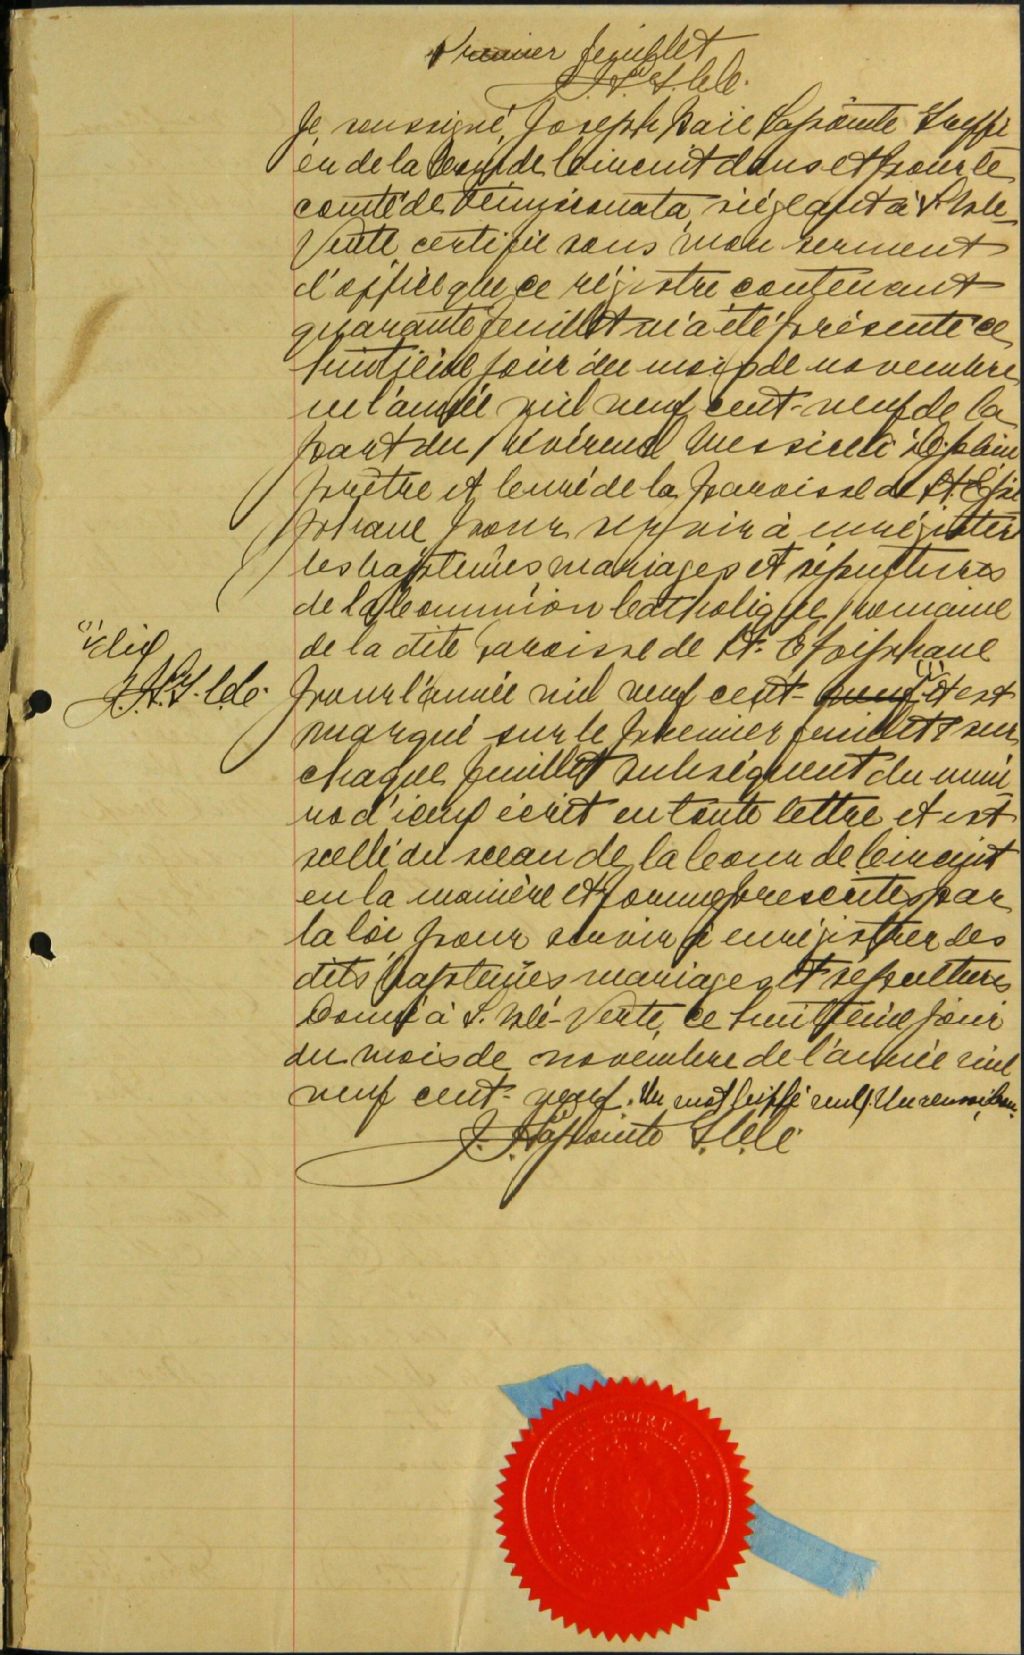 Premier feuillet
J.H.L. G.C.C.
Je, soussigné, Joseph Lapointe Greffi
er de la Cour de Circuit dans et pour le
comté de Témiscouata, siégeant à l'Isle
Verte, certifie sous mon serment
d'office que ce régistre contenant
quarante feuillet m'a été présenté ce
huitième jour du mois de novembre
en l'année mil neuf cent-neuf de la
part du révérend Messire
prêtre et Curé de la paroisse de St. Epi
phane pour servir à enrégistrer
les baptêmes mariages et sépultures
de la Communion Catholique romaine
de la dite Paroisse de St. Epiphane
"dix
J.H.L. G.C.C.
pour l'année mil neuf cent- neuf et est
marqué sur le premier feuillet & sur
chaque feuillet subséquent du numé
ro d'icelui écrit en toute lettre et est
scellé du sceau de la Cour de Circuit
en la manière et forme prescrites par
la loi pour servir à enrégistrer des
dits baptêmes mariages et sépultures
Donné à l'Isle-Verte, ce huitième jour
du mois de novembre de l'année mil
neuf cent- neuf. Un mot biffé nul. Un renvoi bon.
J. H. Lapointe G.C.C.
COURT